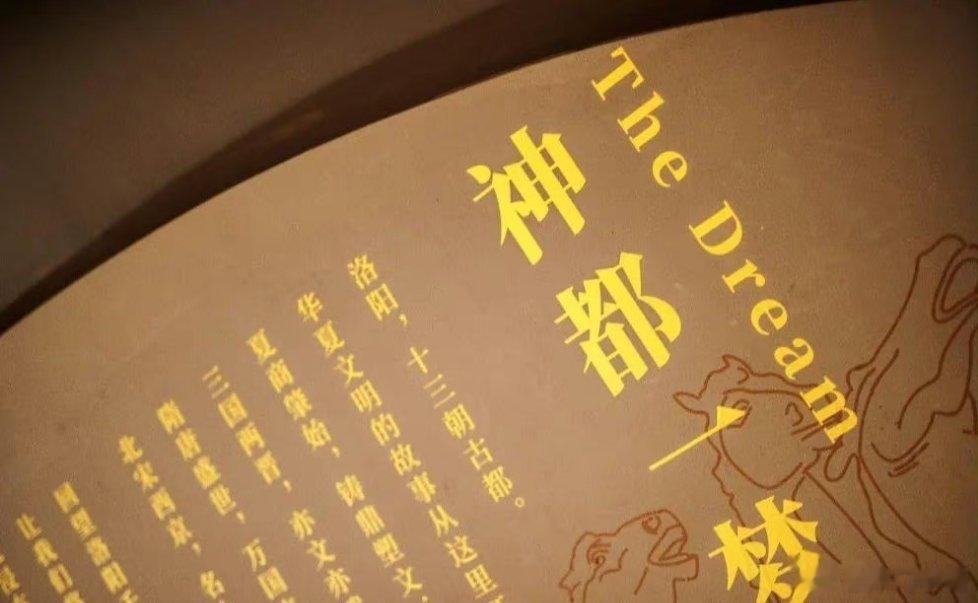 The Dream
神都一梦
洛阳，十三朝古都。
华夏文明的故事从这里
夏商肇始，铸鼎塑文
三国两晋，亦文亦
隋唐盛世，万国
北宋西京，名
回望洛阳
让我们